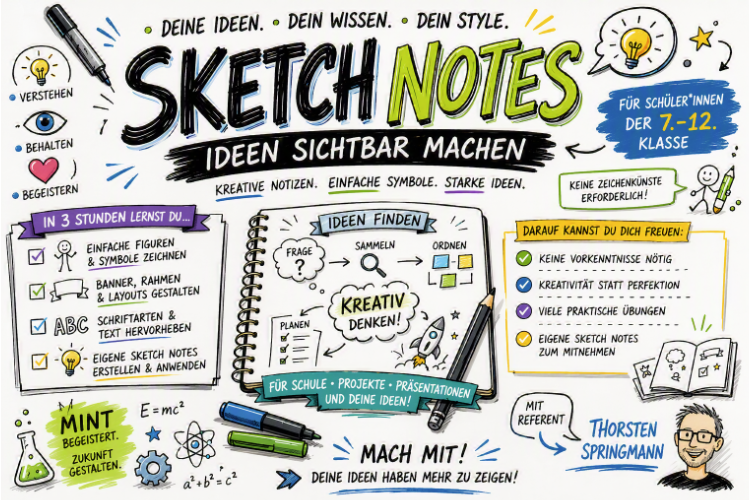 • DEINE IDEEN. • DEIN WISSEN. • DEIN STYLE.
SKETCH NOTES
IDEEN SICHTBAR MACHEN
KREATIVE NOTIZEN. EINFACHE SYMBOLE. STARKE IDEEN.
• VERSTEHEN
• BEHALTEN
• BEGEISTERN
FÜR SCHÜLER*INNEN
DER 7.–12.
KLASSE
KEINE ZEICHENKÜNSTE
ERFORDERLICH!
IN 3 STUNDEN LERNST DU...
EINFACHE FIGUREN
& SYMBOLE ZEICHNEN
BANNER, RAHMEN
& LAYOUTS GESTALTEN
ABC
SCHRIFTARTEN &
TEXT HERVORHEBEN
EIGENE SKETCH NOTES
ERSTELLEN & ANWENDEN
IDEEN FINDEN
FRAGE
?
SAMMELN
ORDNEN
KREATIV
DENKEN!
PLANEN
FÜR SCHULE • PROJEKTE • PRÄSENTATIONEN
UND DEINE IDEEN!
DARAUF KANNST DU DICH FREUEN:
KEINE VORKENNTNISSE NÖTIG
KREATIVITÄT STATT PERFEKTION
VIELE PRAKTISCHE ÜBUNGEN
EIGENE SKETCH NOTES
ZUM MITNEHMEN
MINT
BEGEISTERT.
ZUKUNFT
GESTALTEN.
E = mc²
a² + b² = c²
MACH MIT!
DEINE IDEEN HABEN MEHR ZU ZEIGEN!
MIT
REFERENT
THORSTEN
SPRINGMANN